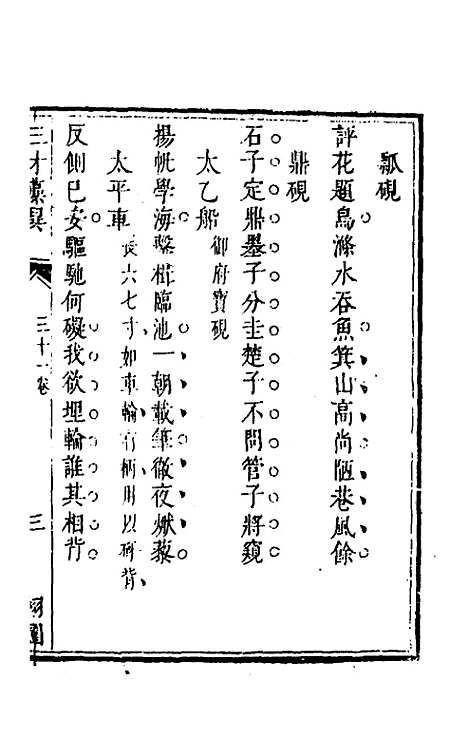 瓢硯
評花題鳥滌水吞魚箕山高尚陋巷風餘
鼎硯
石子定鼎墨子分圭楚子不問管子將窺
太乙船 御府寶硯
揚帆學海繫楫臨池一朝載筆徹夜燃藜
太平車 長六七寸如車輪有柄用以研背
反側已安驅馳何礙我欲埋輪誰其相背
三才藻異 三十一卷 三